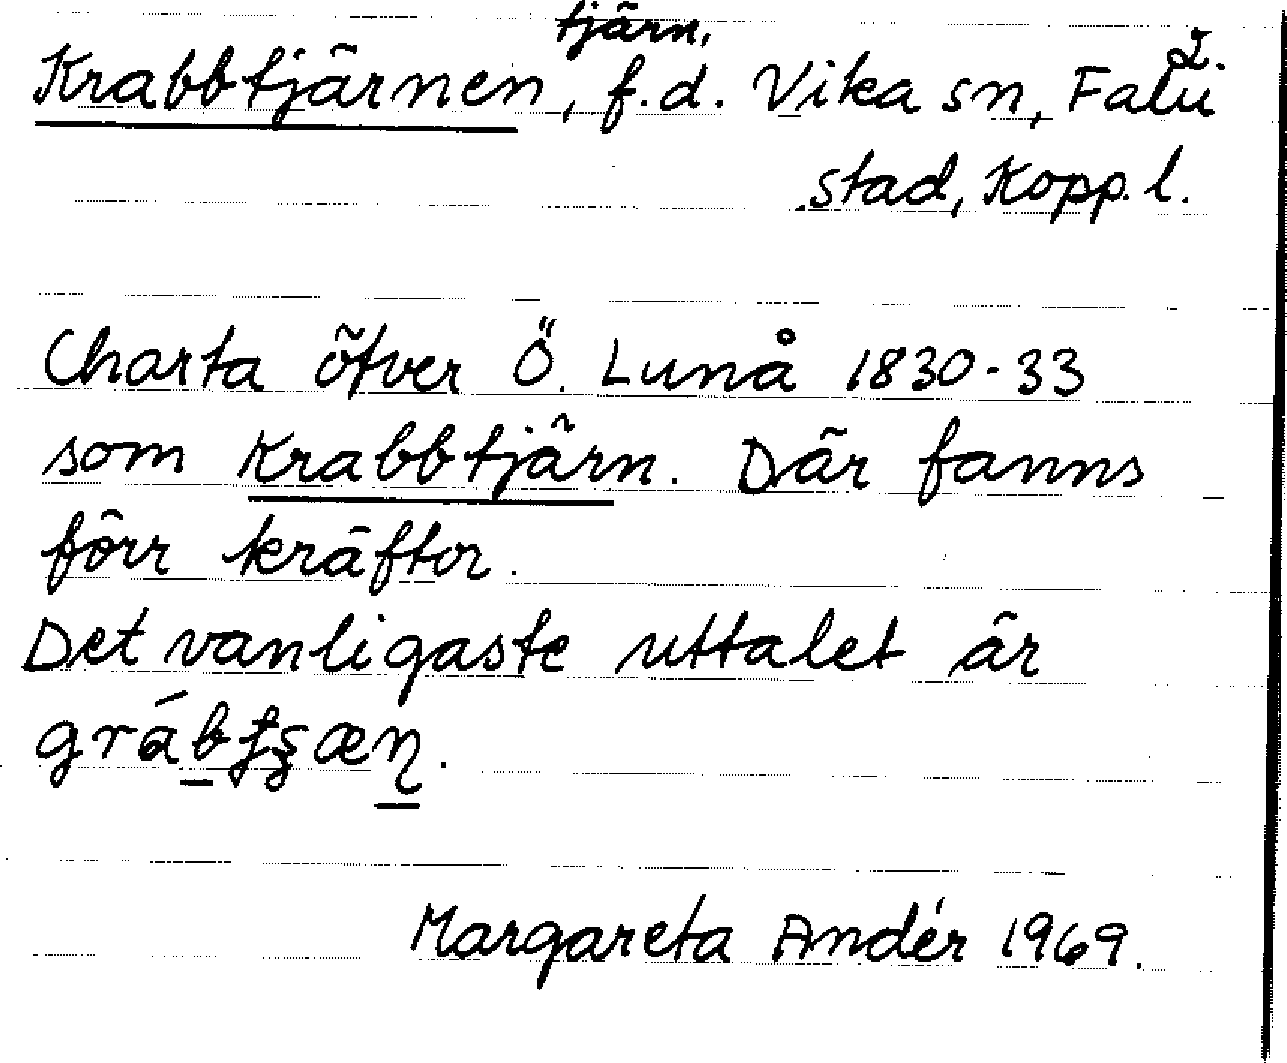 Krabbtjärnen, tjärn, f.d. Vika sn, Falu
stad, Kopp. l.
Charta öfver Ö. Lunå 1830-33
som Krabbtjärn. Där fanns
förr kräftor.
Det vanligaste uttalet är
Margareta Andér 1969.